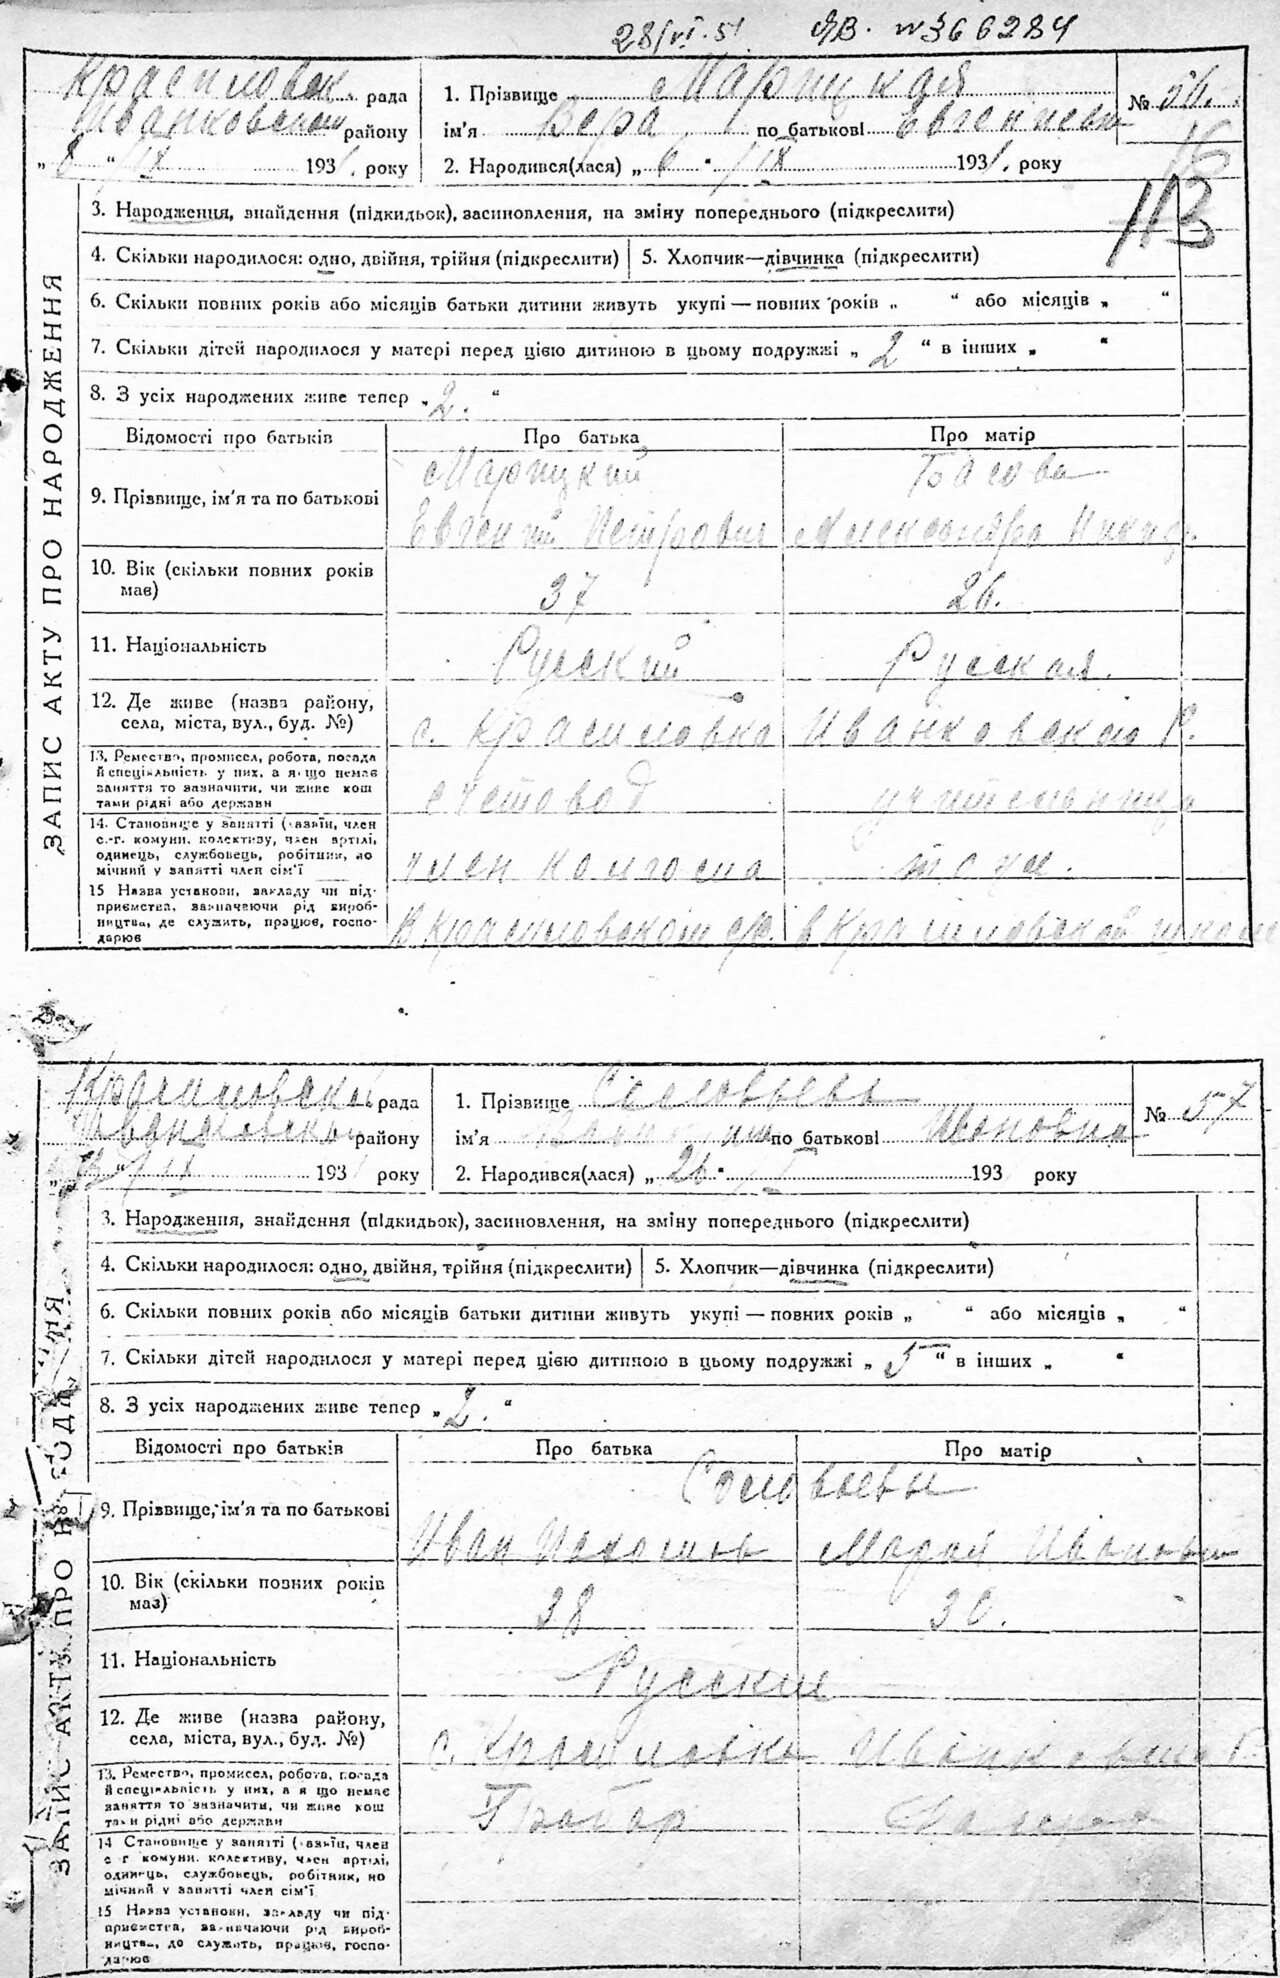 28/VI-51 ЯВ. №366284
Красиловск. рада
Иванковском району
„ 8 “ IX 1931. року
1. Прізвище Марицкая
ім'я Вера по батькові Евгениевн
2. Народився(лася) „ 6 “ IX 1931. року
№ 56.
113
ЗАПИС АКТУ ПРО НАРОДЖЕННЯ
3. Народження, знайдення (підкидьок), засиновлення, на зміну попереднього (підкреслити)
4. Скільки народилося: одно, двійня, трійня (підкреслити) 5. Хлопчик—дівчинка (підкреслити)
6. Скільки повних років або місяців батьки дитини живуть укупі — повних років „ “ або місяців „ “
7. Скільки дітей народилося у матері перед цією дитиною в цьому подружжі „ 2 “ в інших „ “
8. З усіх народжених живе тепер „ 2. “
Відомості про батьків Про батька Про матір
9. Прізвище, ім'я та по батькові
Марицкий Басова
Евгений Петрович Александра Никит.
10. Вік (скільки повних років має) 37 26.
11. Національність Русский Русская.
12. Де живе (назва району, села, міста, вул., буд. №)
с. Красиловка Иванковского Р.
13. Ремество, промисел, робота, посада
й спеціяльність у них, а якщо немає
заняття то зазначити, чи живе кош
тами рідні або держави
счетовод учительница
14. Становище у занятті (хазяїн, член
с.-г. комуни, колективу, член артілі,
одинець, службовець, робітник, по
мічний у занятті член сім'ї
член колгоспа
15 Назва установи, закладу чи під-
приємства, зазначаючи рід вироб-
ництва, де служить, працює, госпо-
дарює
В Красиловском с/с. в Красиловской школе
Красиловской рада
Иванковском району
IX 193 року
1. Прізвище Соловьева
ім'я по батькові Ивановна
2. Народився(лася) „ 26 “ 193 року
№ 57
ЗАПИС АКТУ ПРО НАРОДЖЕННЯ
3. Народження, знайдення (підкидьок), засиновлення, на зміну попереднього (підкреслити)
4. Скільки народилося: одно, двійня, трійня (підкреслити) 5. Хлопчик—дівчинка (підкреслити)
6. Скільки повних років або місяців батьки дитини живуть укупі — повних років „ “ або місяців „ “
7. Скільки дітей народилося у матері перед цією дитиною в цьому подружжі „ 5 “ в інших „ “
8. З усіх народжених живе тепер „ 2. “
Відомості про батьків Про батька Про матір
Соловьевы
9. Прізвище, ім'я та по батькові
Иван Мария Ивановн
10. Вік (скільки повних років має) 38 30.
11. Національність Русския
12. Де живе (назва району, села, міста, вул., буд. №)
с. Красиловка Иванковского Р.
13. Ремество, промисел, робота, посада
й спеціяльність у них, а я що немає
заняття то зазначити, чи живе кош
тами рідні або держави
Грабар
14 Становище у занятті (хазяїн, член
с г комуни, колективу, член артілі,
одинець, службовець, робітник, по
мічний у занятті член сім'ї
15 Назва установи, закладу чи під-
приємства, зазначаючи рід вироб-
ництва, до служить, працює, госпо-
дарює